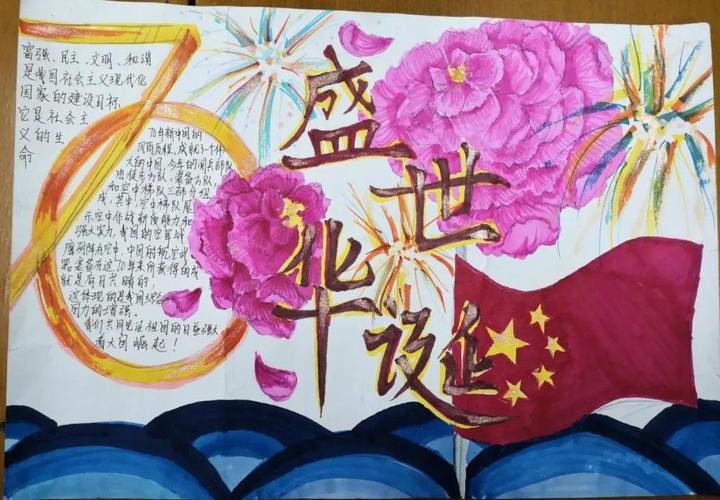 70
富强、民主、文明、和谐
是我国社会主义现代化
国家的建设目标,
它是社会主
义的生
命
70年新中国的
风雨历程,成就了一个伟
大的中国,今年的阅兵部队
由徒步方队、装备方队、
和空中梯队三部分组
成,其中,空中梯队展
示空中作战新质能力和
强大实力,我国的空军战
鹰列阵长空,中国的航空武
器装备在这70年来所获得的成
就是有目共睹的!
这体现的是我国综合
国力的增强。
我们共同见证祖国的日益强大,
看大国崛起!
盛世
华诞